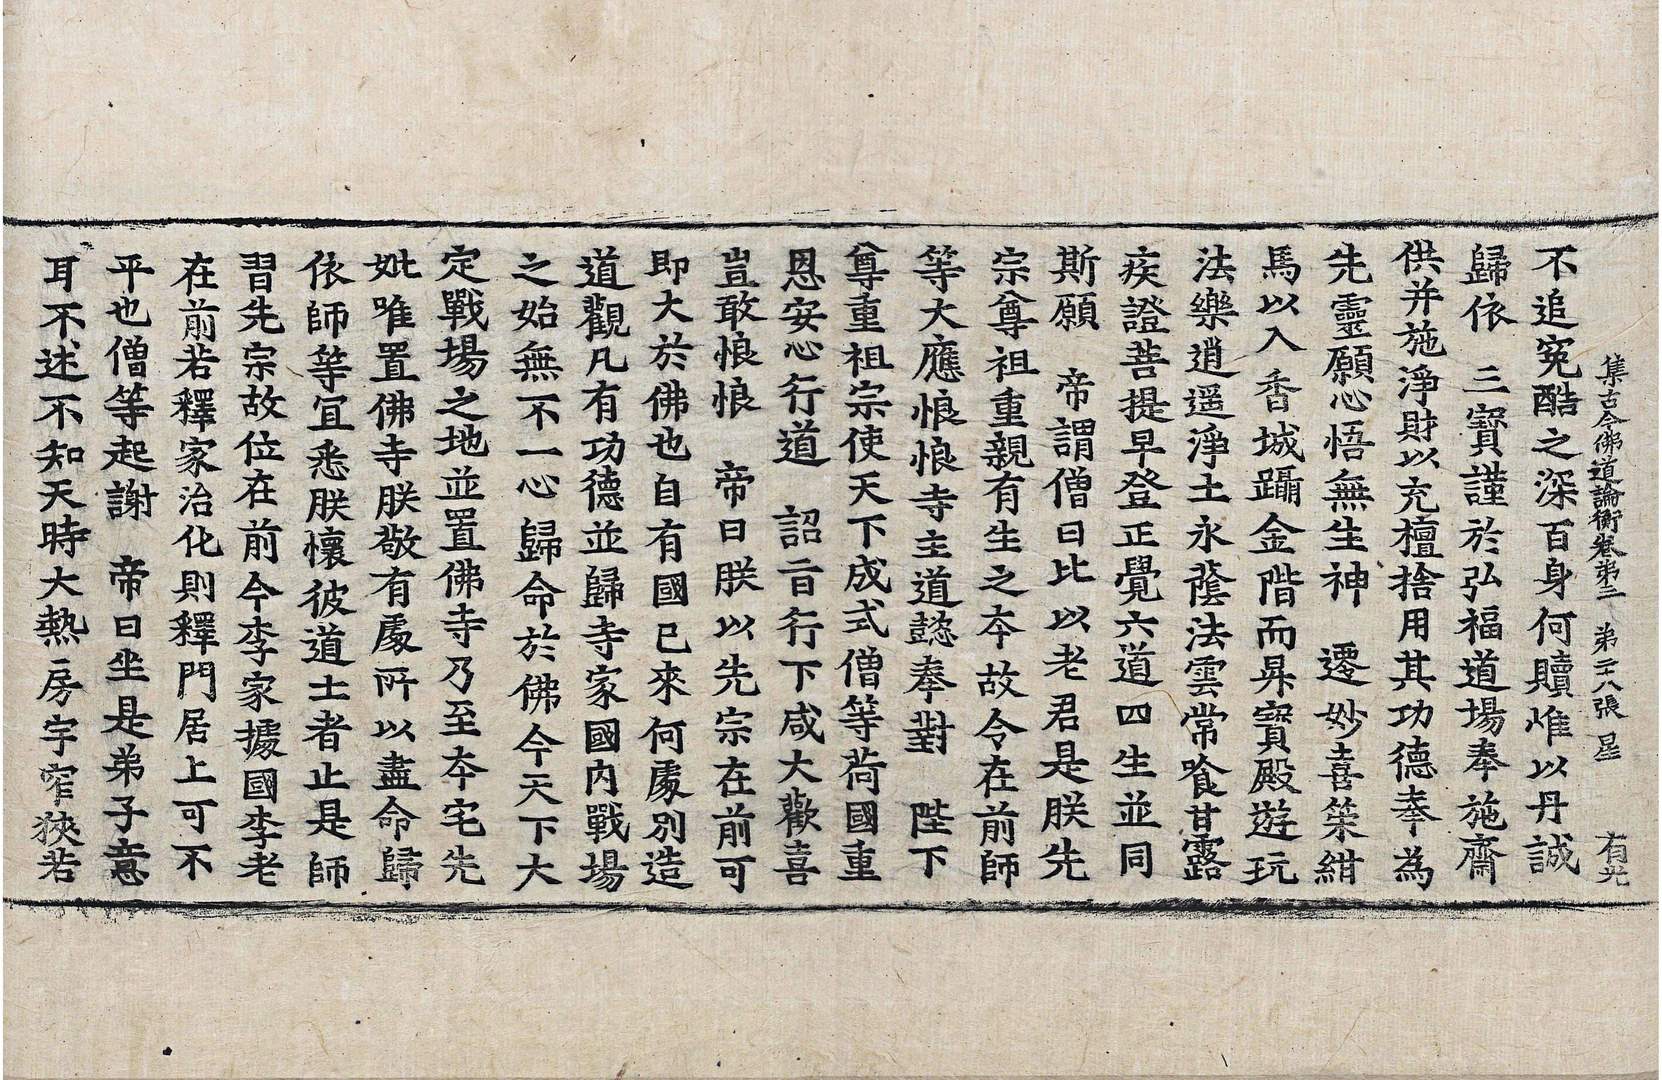 集古今佛道論衡卷苐三 苐二十八張 星 有光
不追冤酷之深百身何贖惟以丹誠
歸依 三寶謹於弘福道場奉施齋
供并施淨財以充檀捨用其功德奉為
先靈願心悟無生神 遷妙喜策紺
馬以入香城躡金階而昇寶殿遊玩
法樂逍遥淨土永蔭法雲常飡甘露
疾證菩提早登正覺六道四生並同
斯願 帝謂僧曰比以老君是朕先
宗尊祖重親有生之夲故令在前師
等大應悢悢寺主道懿奉對 陛下
尊重祖宗使天下成式僧等荷國重
恩安心行道 詔旨行下咸大歡喜
豈敢悢悢 帝曰朕以先宗在前可
即大於佛也自有國已來何處別造
道觀凡有功德並歸寺家國內戰場
之始無不一心歸命於佛今天下大
定戰場之地並置佛寺乃至夲宅先
妣唯置佛寺朕敬有處所以盡命歸
依師等宜悉朕懷彼道士者止是師
習先宗故位在前今李家據國李老
在前若釋家治化則釋門居上可不
平也僧等起謝 帝曰坐是弟子意
耳不述不知天時大熱房宇窄狹若